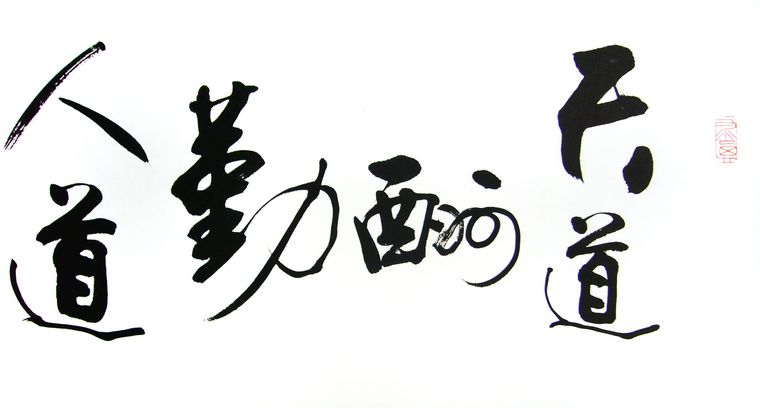 天道
酬
勤
人道